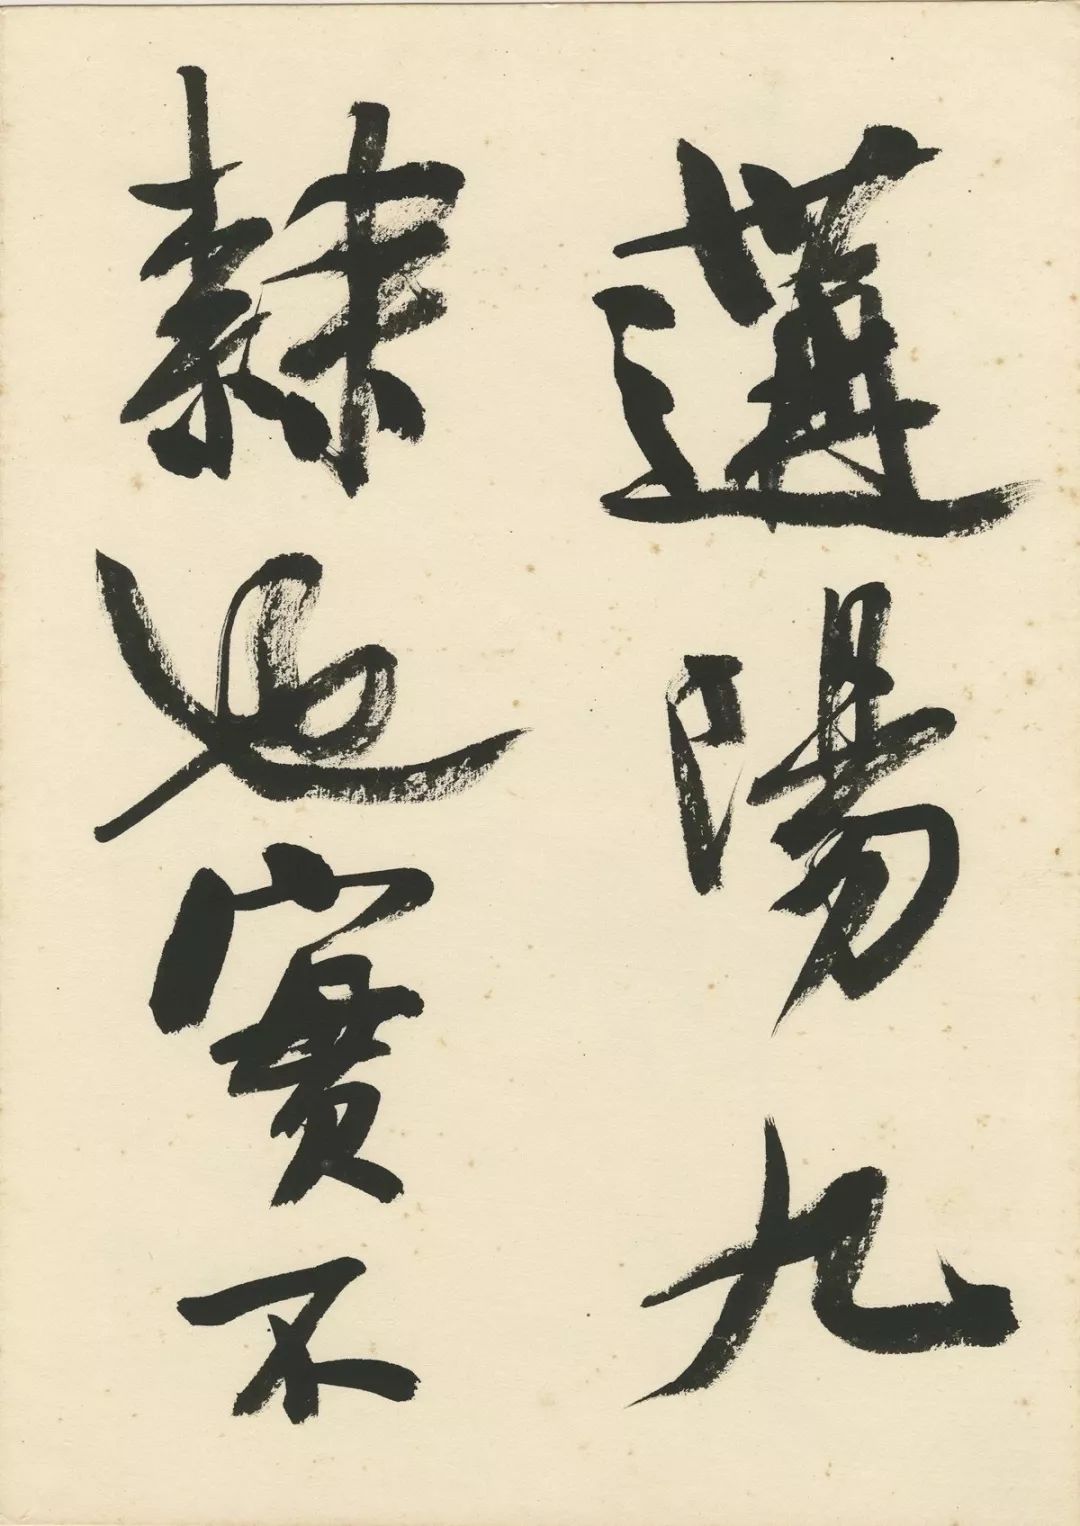 遘陽九
隸也實不